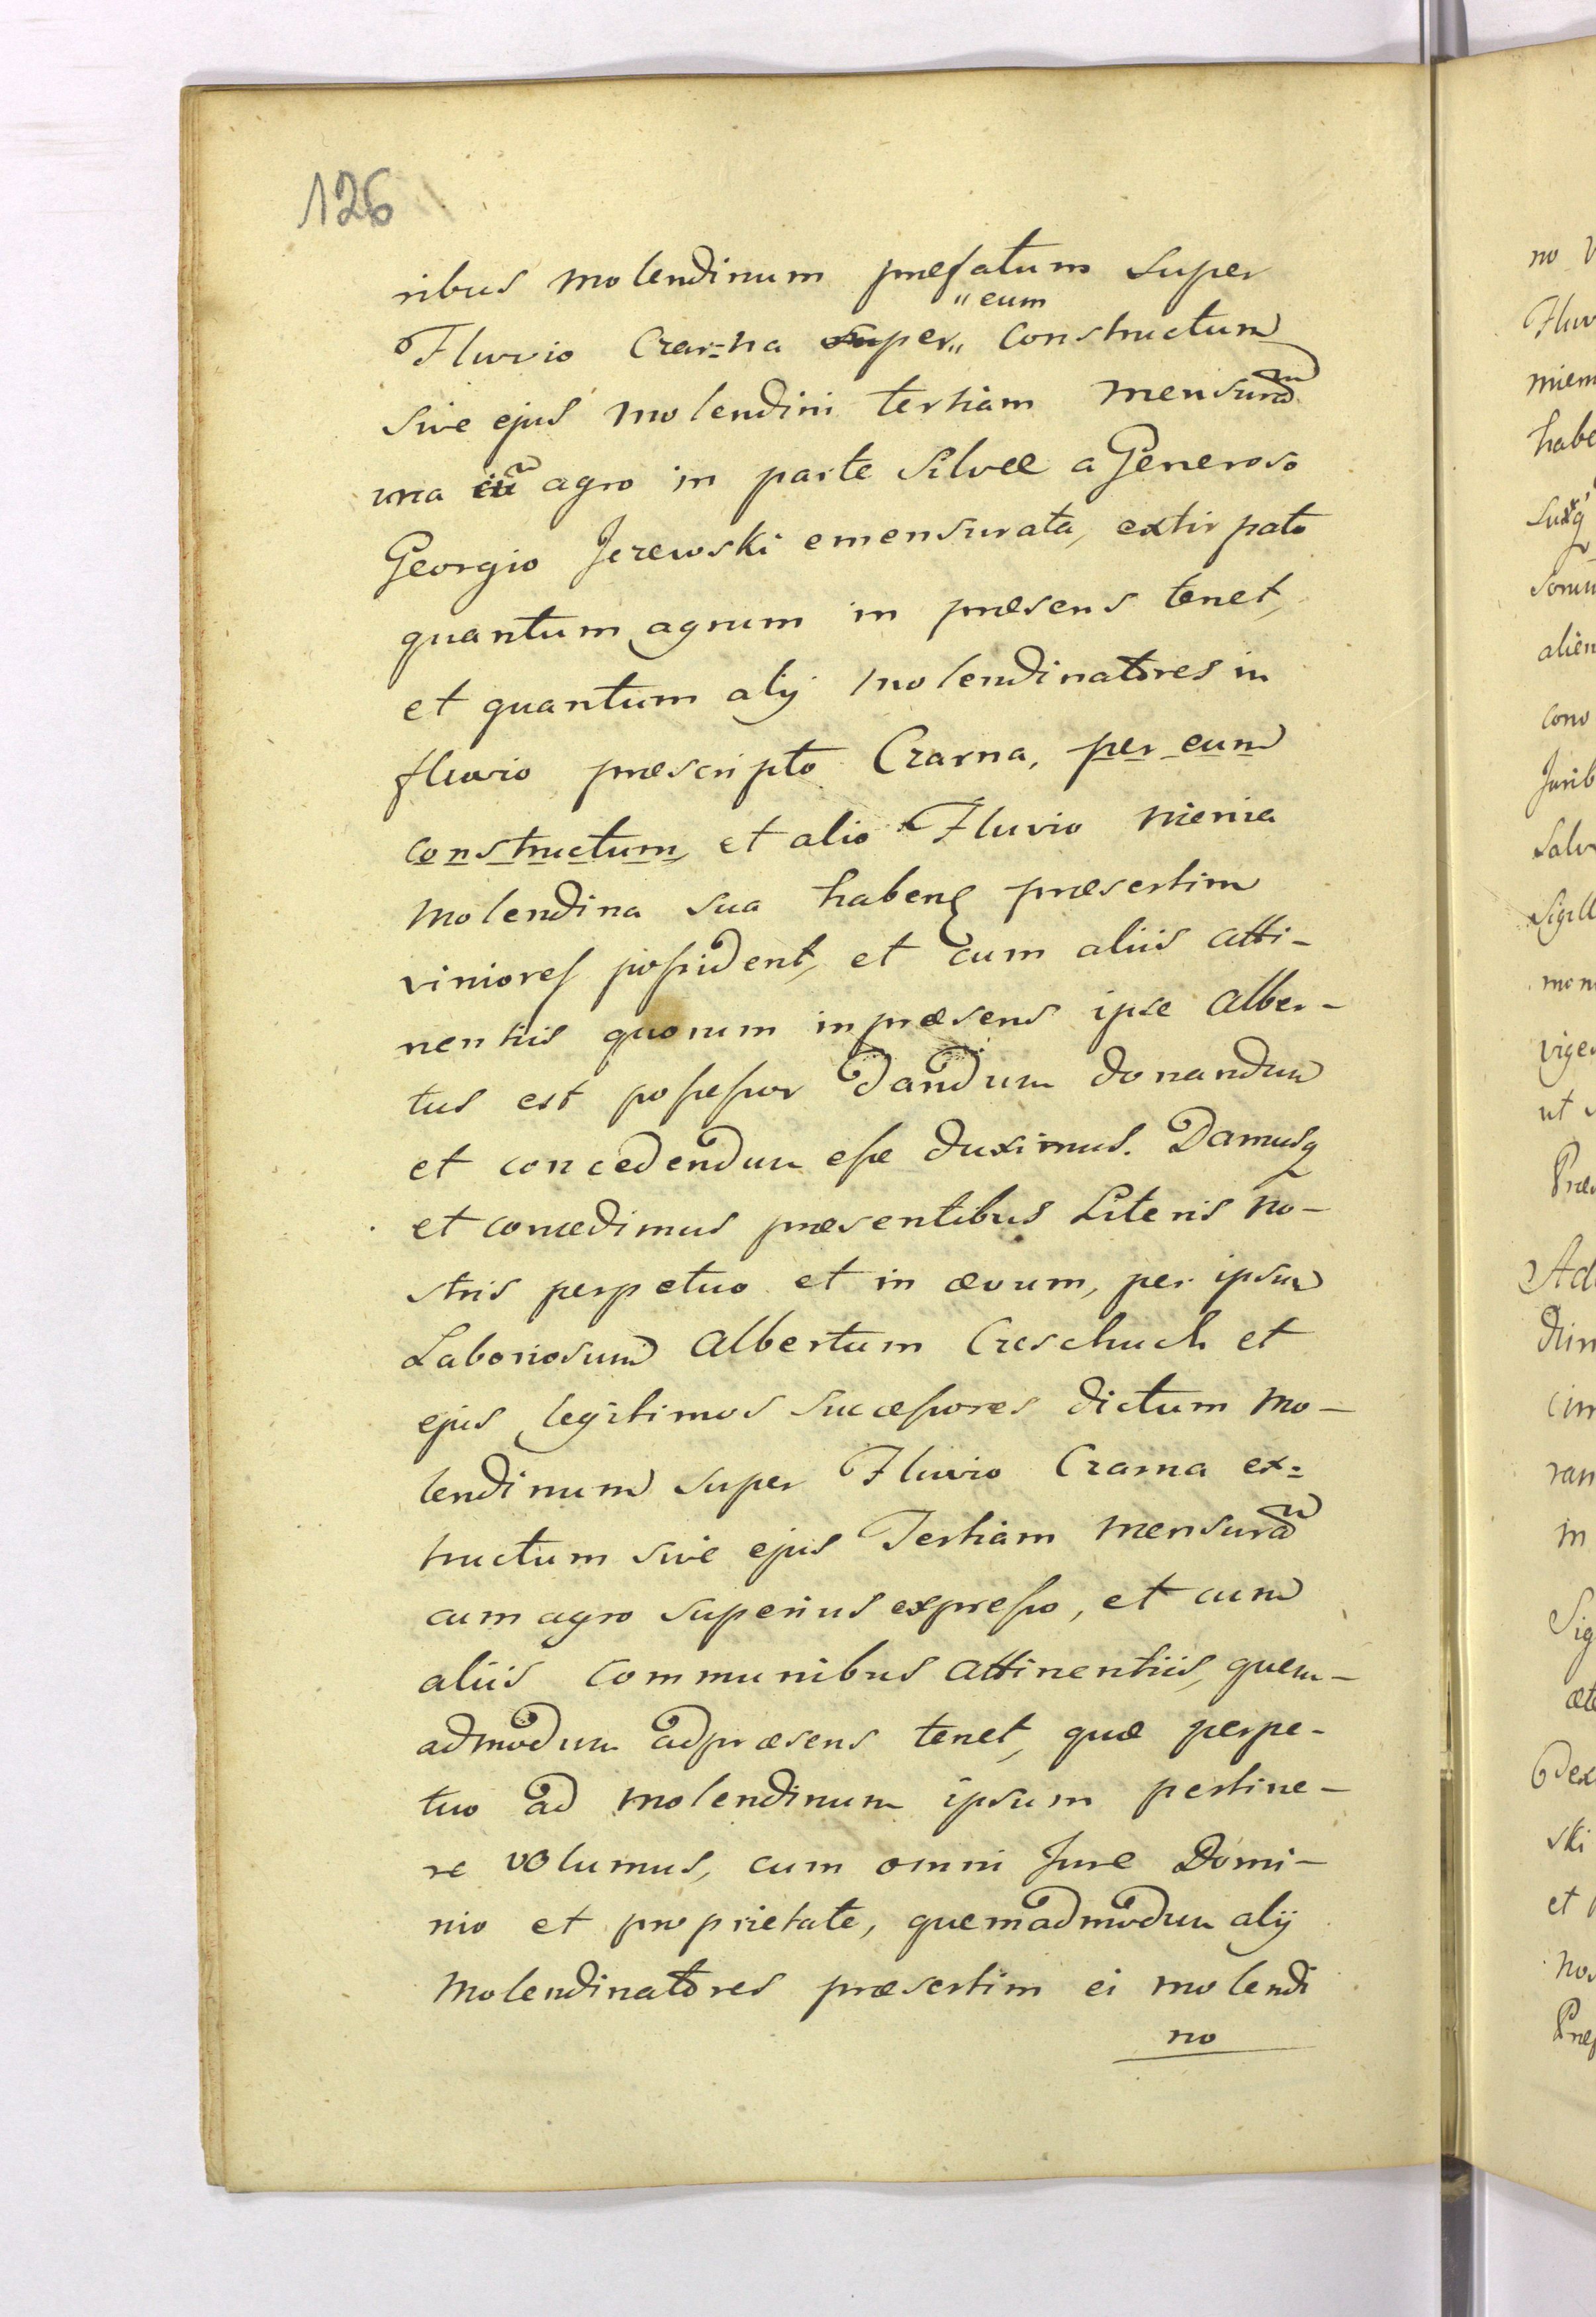 126
ribus molendinum præfatum super
Fluvio Czarna super „eum„ constructum
sive ejus molendini tertiam mensuram
una cũ agro in parte Silvæ a Generoso
Georgio Jezewski emensurata, extirpato
quantum agrum in præsens tenet,
et quantum alij molendinatores in
fluvio præscripto Czarna, per eum
constructum, et alio Fluvio nienia
molendina sua habenꝭ præsertim
viniores possident, et cum aliis atti-
nentiis quorum in præsens ipse Alber-
tus est possessor dandum donandum
et concedendum esse duximus. Damusq
et concedimus præsentibus Literis no-
stris perpetuo et in ævum, per ipsum
Laboriosum Albertum Czeschuch et
ejus legitimos successores dictum mo-
lendinum super Fluvio Czarna ex=
tructum sive ejus Tertiam mensuram
cum agro superius expresso, et cum
aliis communibus attinentiis, quem-
admodum ad præsens tenet, quæ perpe-
tuo ad molendinum ipsum pertine-
re volumus, cum omni Jure Domi-
nio et proprietate, quemadmodum alij
Molendinatores præsertim ei molendi
no